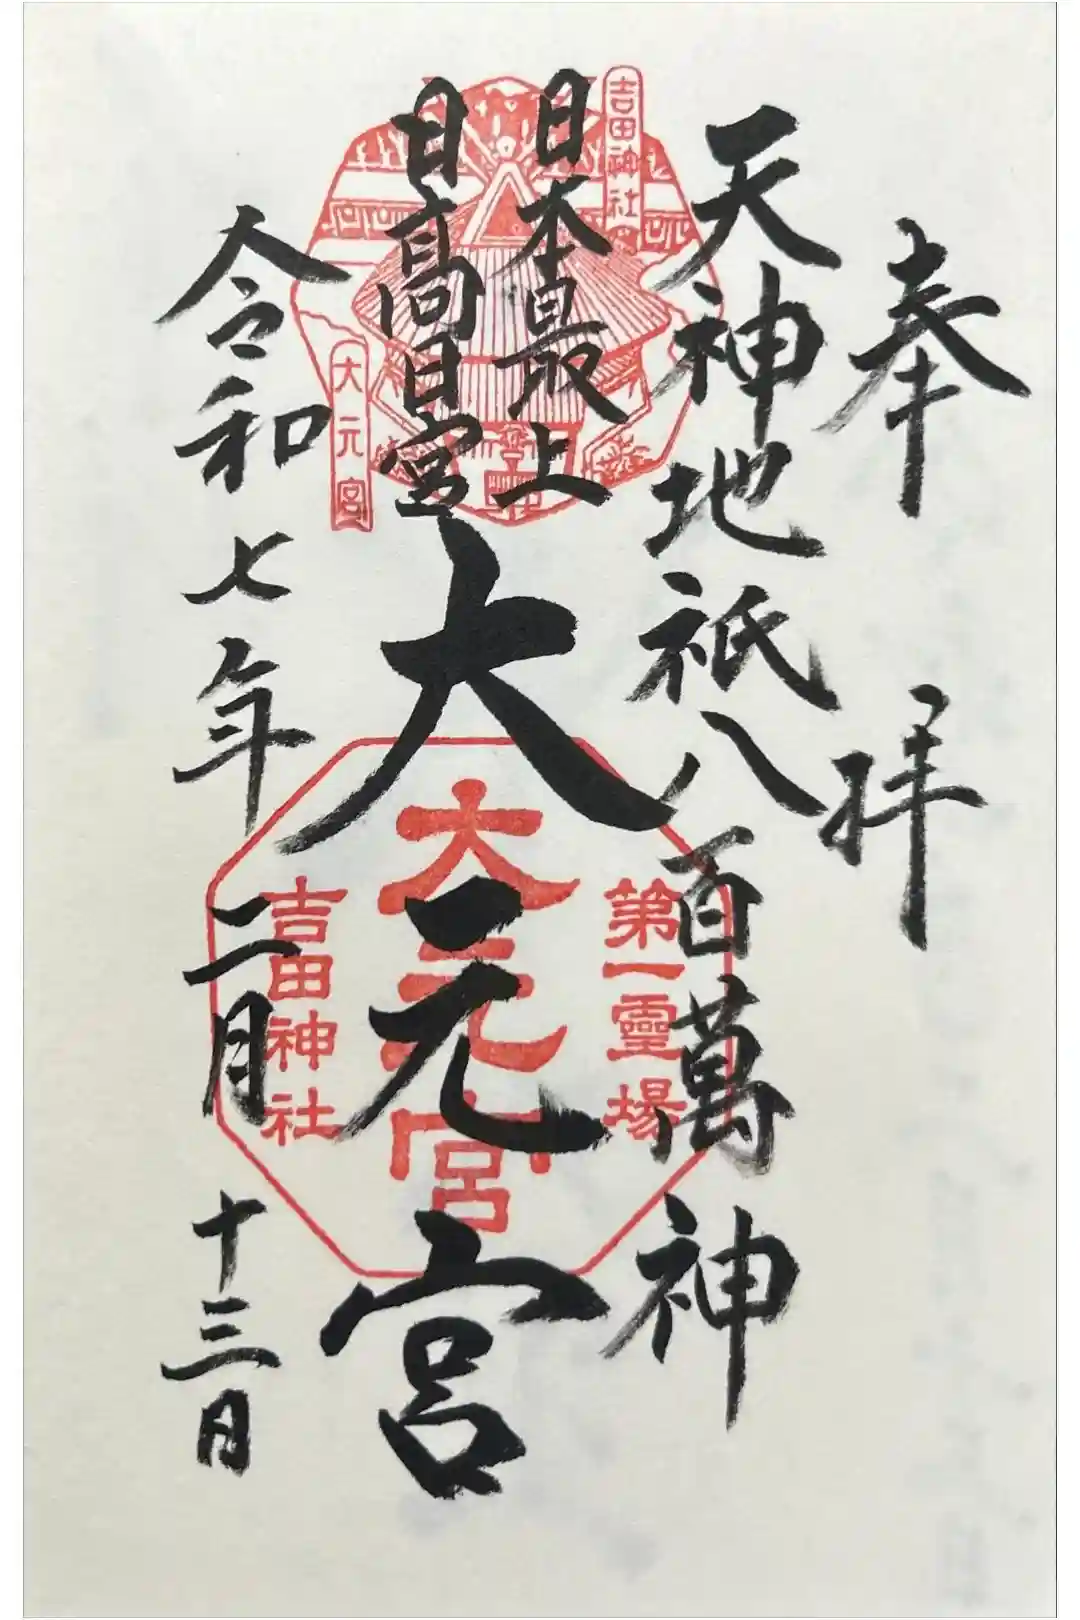 奉拝
天神地祇八百萬神
日本最上
日高日宮
大元宮
令和七年二月十三日
吉田神社
大元宮
第一靈場
大元宮
吉田神社